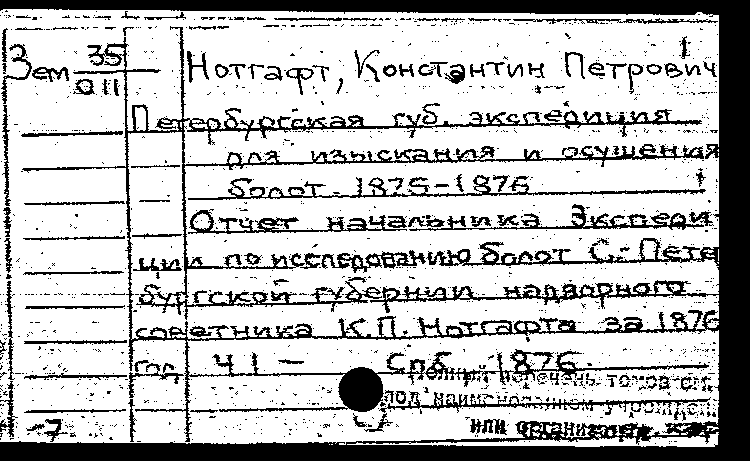 Зем 35/0 11
Нотгафт, Константин Петрович
Петербургская губ. экспедиция
для изыскания и осушения
болот. 1875-1876
Отчет начальника Экспеди-
ции по исследованию болот С.-Петер
бургской губернии надворного
советника К.П. Нотгафта за 1876
год Ч 1 — Спб, 1876.
Полный перечень томов см.
под наименованием учрежден
или организац.
-7